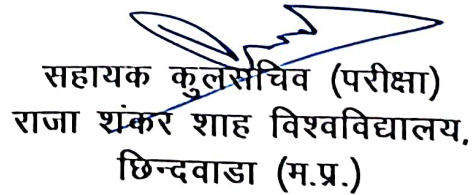 सहायक कुलसचिव (परीक्षा)
राजा शंकर शाह विश्वविद्यालय,
छिन्दवाडा (म.प्र.)